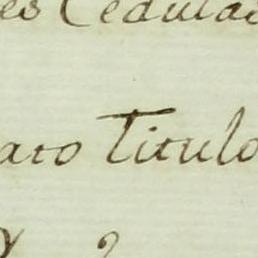 es Cedulas
aro Titulo